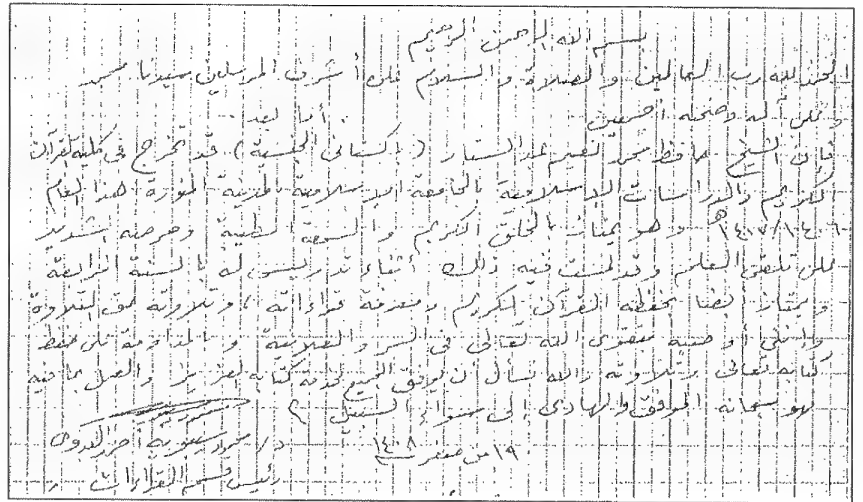 بسم الله الرحمن الرحيم
الحمد لله رب العالمين والصلاة والسلام على أشرف المرسلين سيدنا محمد
وعلى آله وصحبه أجمعين . أما بعد
فإن الشيخ حافظ محمد نعيم عبد الستار ( باكستاني الجنسية ) قد تخرج في كلية القرآن
الكريم والدراسات الإسلامية بالجامعة الإسلامية بالمدينة المنورة هذا العام
١٤٠٦/١٤٠٧هـ وهو يمتاز بالخلق الكريم والسمعة الطيبة وحرصه الشديد
على تلقي العلم وقد لمست فيه ذلك أثناء تدريسي له بالسنة الرابعة
ويمتاز أيضا بحفظه القرآن الكريم ومعرفة قراءاته ، وتلاوته حق التلاوة
وإنني أوصيه بتقوى الله تعالى في السر والعلانية وبالمداومة على حفظ
كتابه تعالى وتلاوته والله نسأل أن يوفق الجميع لخدمة كتابه العزيز والعمل بما فيه
فهو سبحانه الموفق والهادي إلى سواء السبيل
د/ محمود سيبويه أحمد البدوي
١٩ من صفر ١٤٠٨
رئيس قسم القراءات